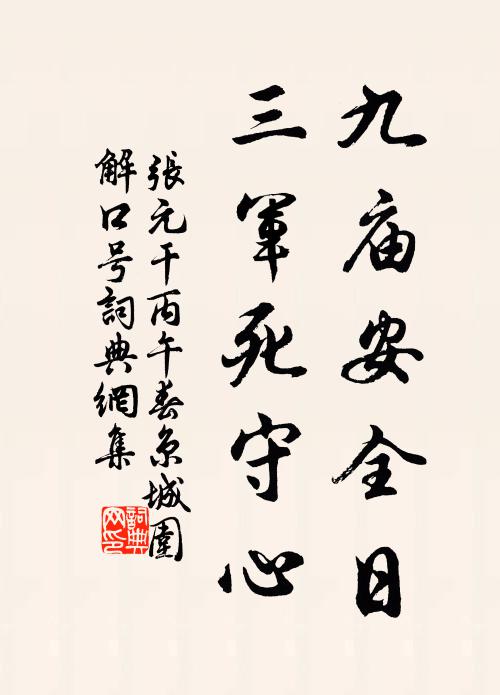 九庙安全日
三軍死守心
張元干丙午春京城圍
解口号詞典網集
詞典
网印